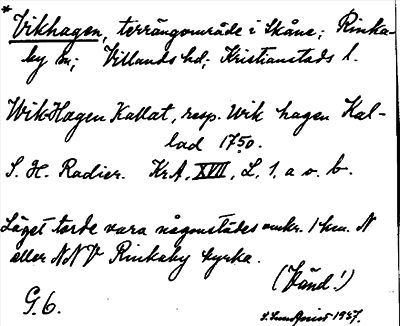 * Vikhagen, terrängområde i Skåne; Rinka-
by sn; Villands hd; Kristianstads l.
Wik-Hagen Kallat, resp. Wik hagen Kal-
lad 1750.
S. H. Radier. KrA, XVII, L, 1, a o. b.
Läget torde vara någonstädes omkr. 1 km. N
eller NNV Rinkaby kyrka.
(Vänd!)
G. 6.
1937.